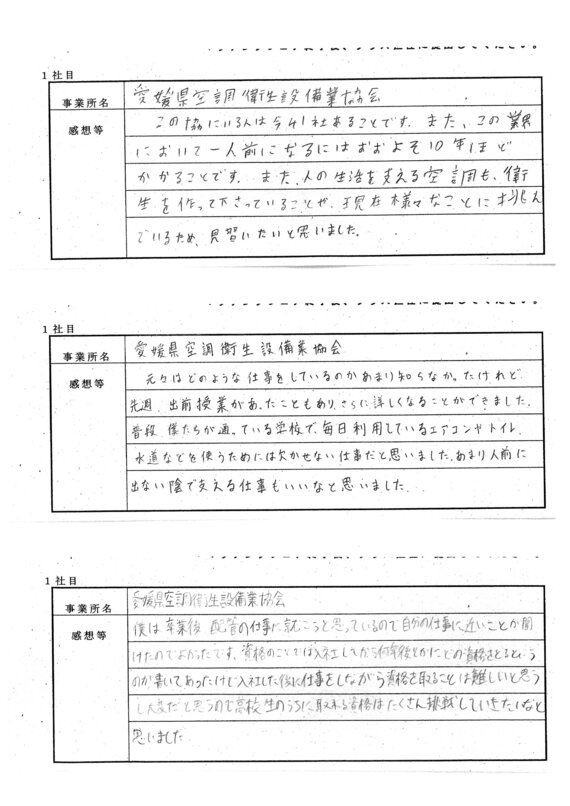 1社目
事業所名
愛媛県空調衛生設備業協会
感想等
この協にいる人は今41社あることです。また、この業界
において一人前になるにはおおよそ10年ほど
かかることです。また、人の生活を支える空調も、衛
生を作って下さっていることや、現在様々なことに挑ん
でいるため、見習いたいと思いました。
1社目
事業所名
愛媛県空調衛生設備業協会
感想等
元々はどのような仕事をしているのかあまり知らなかったけれど、
先週、出前授業があったこともあり、さらに詳しくなることができました。
普段、僕たちが通っている学校で、毎日利用しているエアコンやトイレ、
水道などを使うためには欠かせない仕事だと思いました。あまり人前に
出ない陰で支える仕事もいいなと思いました。
1社目
事業所名
愛媛県空調衛生設備業協会
感想等
僕は卒業後、配管の仕事に就こうと思っているので自分の仕事に近いことが聞
けたのでよかったです。資格のことでは入社してから何年後とかにどの資格をとるという
のが書いてあったけど入社した後に仕事をしながら資格を取ることは難しいと思う
し大変だと思うので高校生のうちに取れる資格はたくさん挑戦していきたいなと
思いました